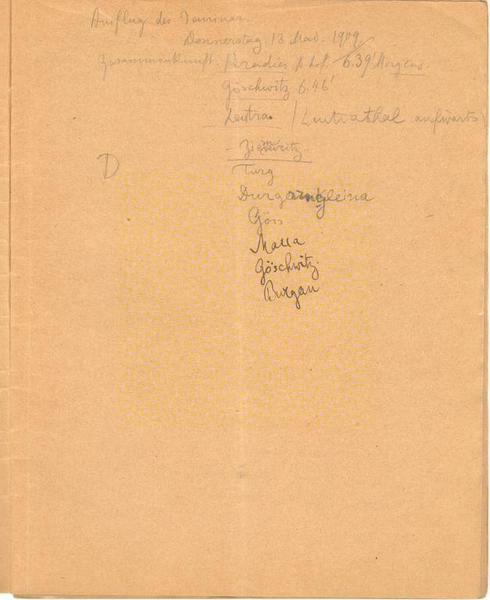 Ausflug des Seminar.
Donnerstag 13 Mai. 1909
Zusammenkunft. Paradies b hof. 6.39' Morgens.
Göschwitz 6.46'
Leutra. / Leutrathal aufwärts
D
Göss
Maua
Göschwitz.
Burgau